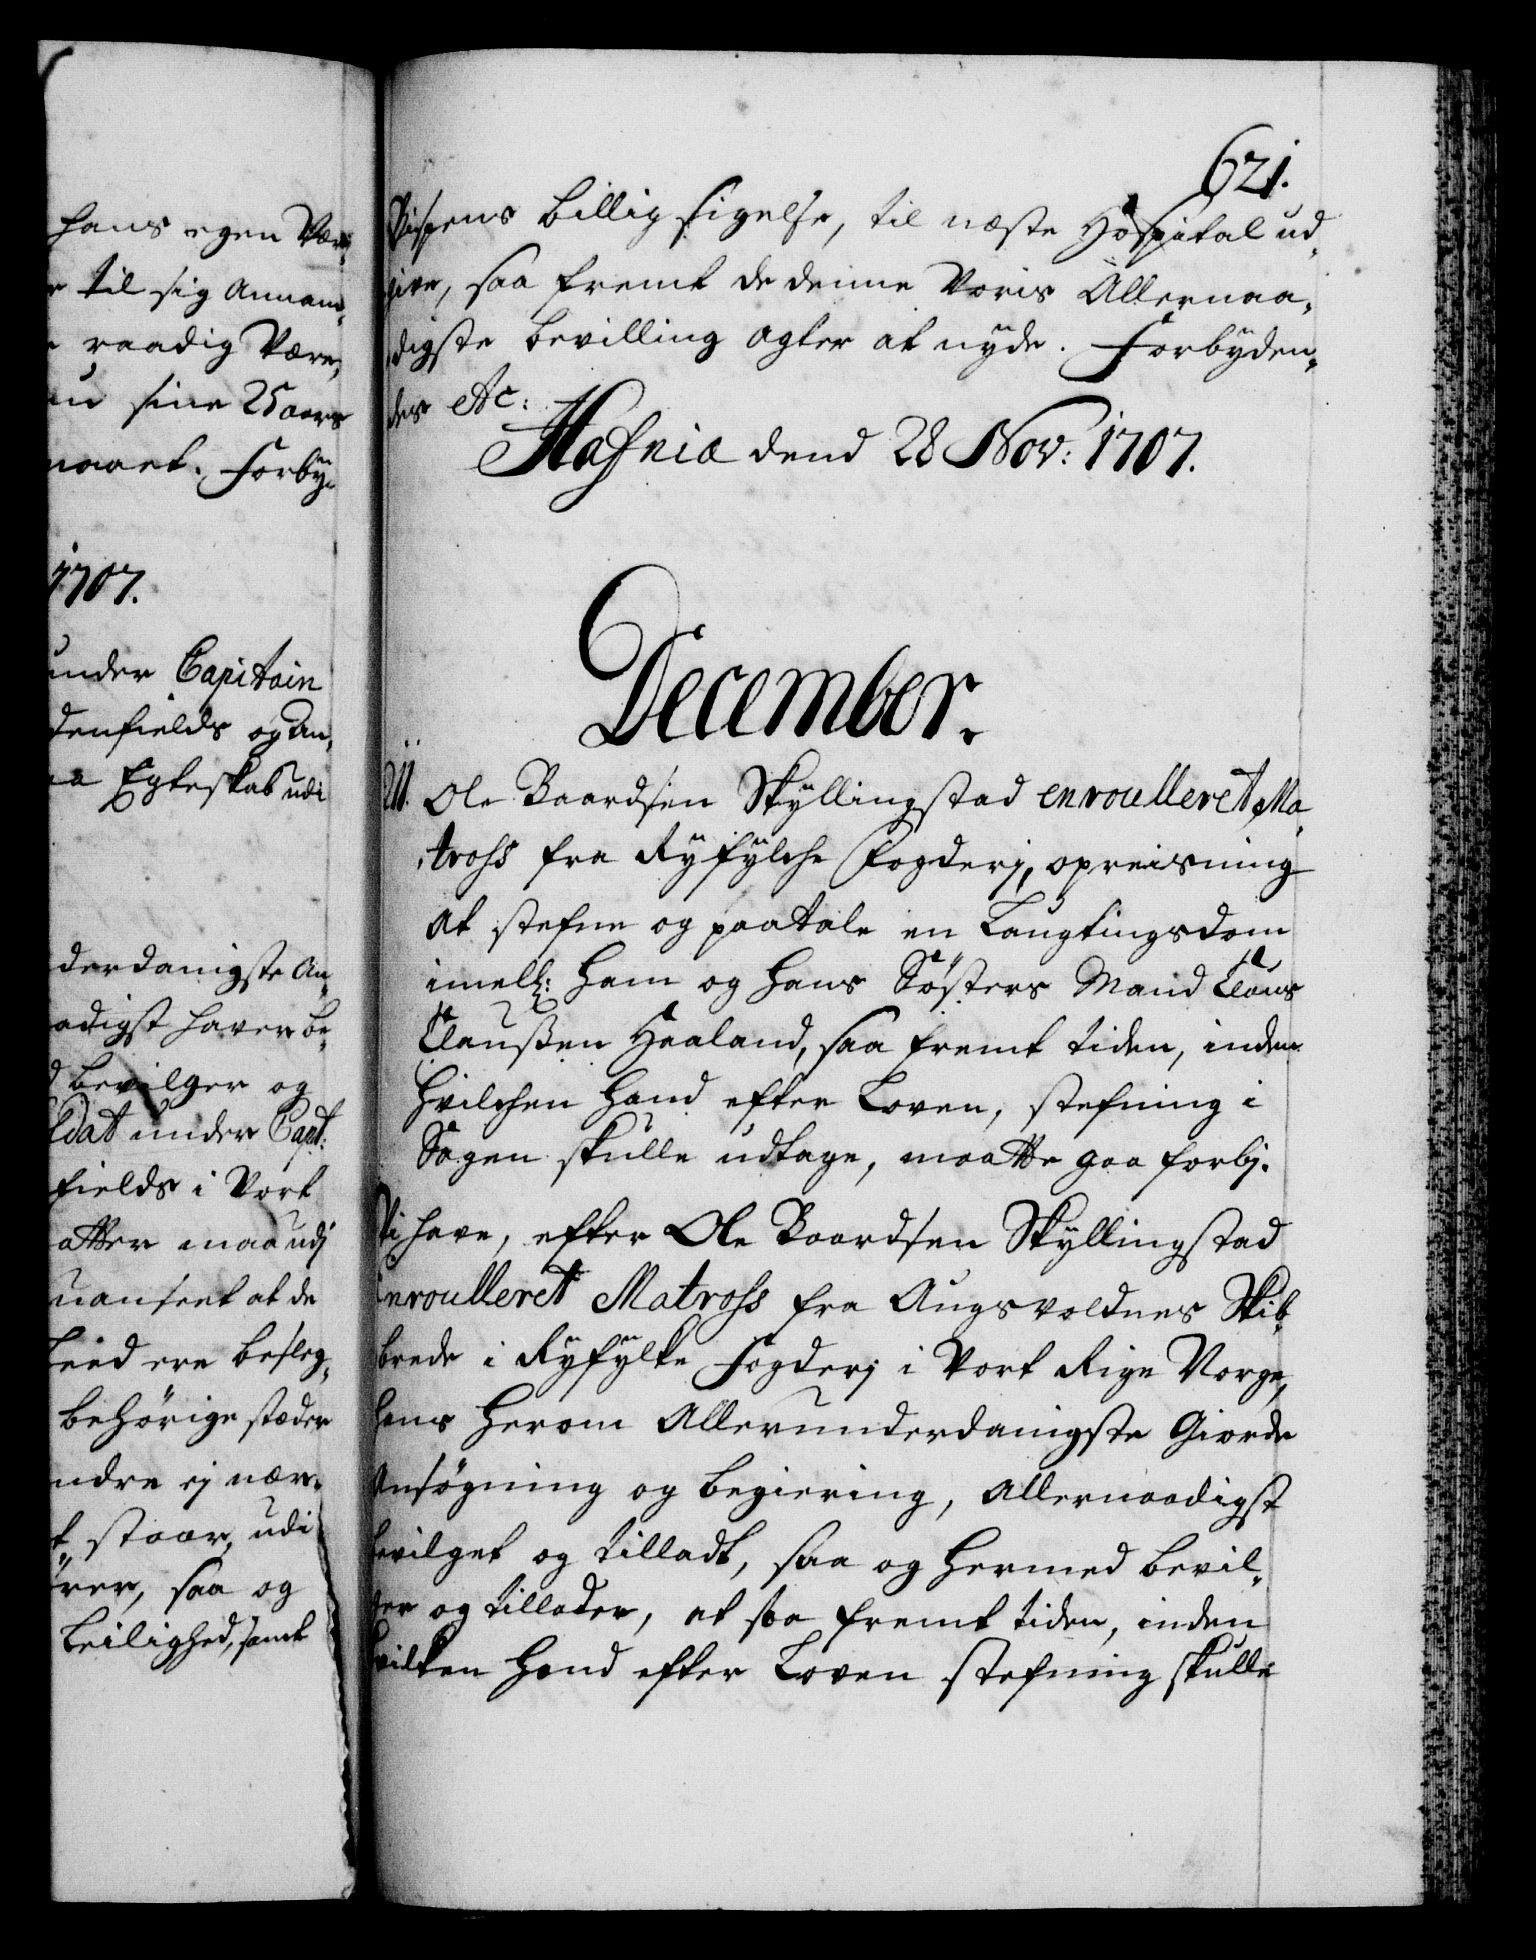 hans egen Vær
til sig Annam„
raadig Være,
sine 25 aars
Forby„
1707.
under Capitain
denfields og An„
Egteskab udi
derdanigste An„
adigst haver be„
bevilger og
ldat under Capt:
fields i Vort
atter maa udj
uanseet at de
ere besleg„
behörige stæder
ndre ej nær„
staar, udi
rer, saa og
beilighed, samt
621.
Bispens billig sigelse, til næste Hospital ud„
give, saa fremt de denne Voris Allernaa„
digste bevilling agter at nyde. Forbyden„
des etc:
Hafniæ dend 28 Nov: 1707.
December.
211. Ole Baardsen Skyllingstad enroulleret Ma„
tross fra Ryfylche Fogderj, opreisning
at stefne og paatale en Laugtingsdom
imell: ham og hans Søsters Mand Claus
Claussen Haaland, saa fremt tiden, inden
hvilchen hand efter Loven, stefning i
Sagen skulle udtage, maatte gaa forbj.
Vi have, efter Ole Baardsen Skyllingstad
Enroulleret Matross fra Augsvoldnes Skib„
brede i Ryfylke Fogderj i Vort Rige Norge,
hans herom Allerunderdanigste Giorde
Ansøgning og begiering, Allernaadigst
bevilget og tilladt, saa og hermed bevil„
ger og tillader, at saa fremt tiden, inden
hvilken hand efter Loven stefning skulle